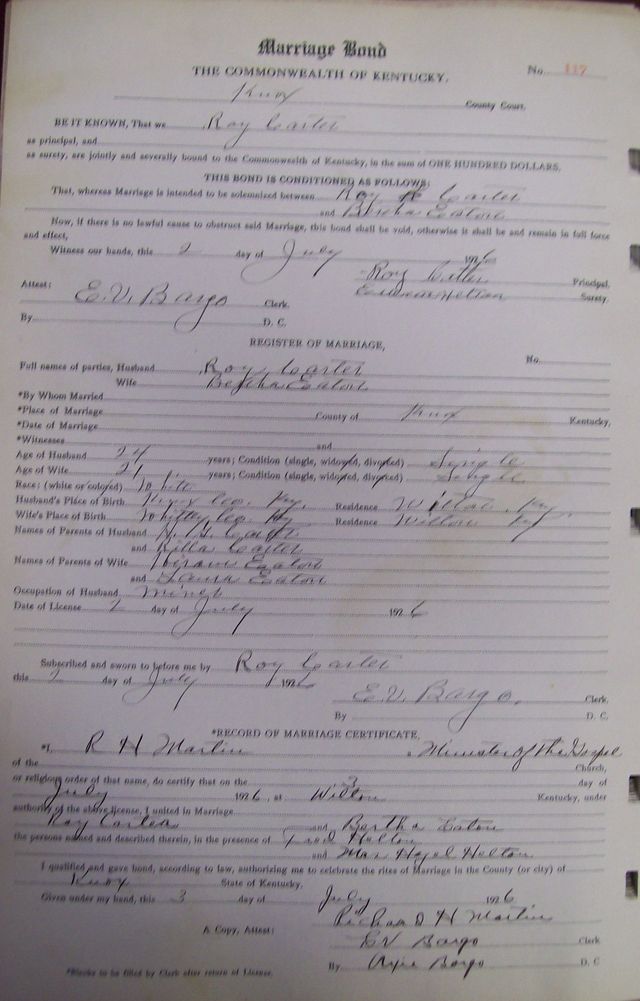 Marriage Bond
THE COMMONWEALTH OF KENTUCKY,
No. 117
Knox County Court.
BE IT KNOWN, That we Roy Carter
as principal, and
as surety, are jointly and severally bound to the Commonwealth of Kentucky, in the sum of ONE HUNDRED DOLLARS.
THIS BOND IS CONDITIONED AS FOLLOWS:
That, whereas Marriage is intended to be solemnized between Roy Carter
and Bertha Eaton
Now, if there is no lawful cause to obstruct said Marriage, this bond shall be void, otherwise it shall be and remain in full force
and effect,
Witness our hands, this 2 day of July 1926
Roy Carter Principal,
Attest: Helton Surety.
E. V. Bargo Clerk.
By D. C.
REGISTER OF MARRIAGE,
No.
Full names of parties, Husband Roy Carter
Wife Bertha Eaton
*By Whom Married
*Place of Marriage County of Knox Kentucky,
*Date of Marriage
*Witnesses and
Age of Husband 24 years; Condition (single, widowed, divorced) Single
Age of Wife 21 years; Condition (single, widowed, divorced) Single
Race: (white or colored) White
Husband's Place of Birth Knox Co. Ky. Residence Wilton, Ky.
Wife's Place of Birth Whitley Co. Ky Residence Wilton Ky
Names of Parents of Husband Carter
and Carter
Names of Parents of Wife Hiram Eaton
and Laura Eaton
Occupation of Husband Miner
Date of License 2 day of July 1926
Subscribed and sworn to before me by Roy Carter
this 2 day of July 1926
E. V. Bargo, Clerk.
By D. C.
*RECORD OF MARRIAGE CERTIFICATE,
*I, R H Martin a Minister of the Gospel
of the Church,
or religious order of that name, do certify that on the 3 day of
July 1926, at Wilton Kentucky, under
authority of the above license, I united in Marriage
Roy Carter and Bertha Eaton
the persons named and described therein, in the presence of Fred Helton
and Mrs Hazel Helton
I qualified and gave bond, according to law, authorizing me to celebrate the rites of Marriage in the County (or city) of
Knox State of Kentucky.
Given under my hand, this 3 day of July 1926
Richard H Martin
A Copy, Attest: E V Bargo Clerk
By Bargo D. C
*Blanks to be filled by Clerk after return of License.